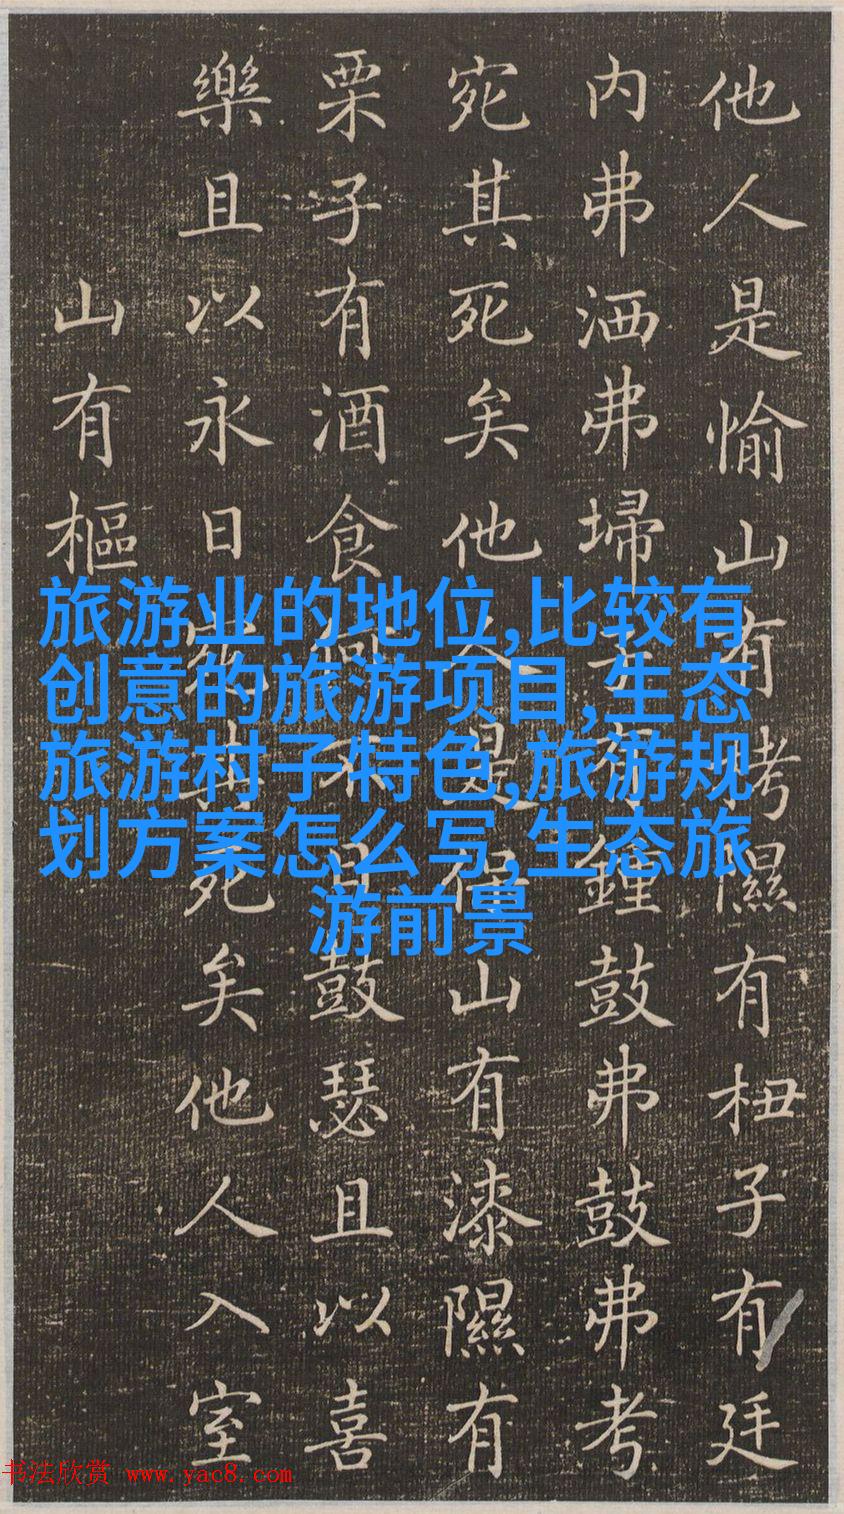 他人是愉山有栲隰有杻子有廷
内弗洒弗埽子有鐘鼓弗鼓弗考
宛其死矣他人是保山有漆隰有
栗子有酒食何不日鼓瑟且以喜
樂且以永日宛其死矣他人入室
山有樞
旅游业的地位,比较有
创意的旅游项目,生态
旅游村子特色,旅游规
划方案怎么写,生态旅
游前景
书法欣赏 www.yac8.com